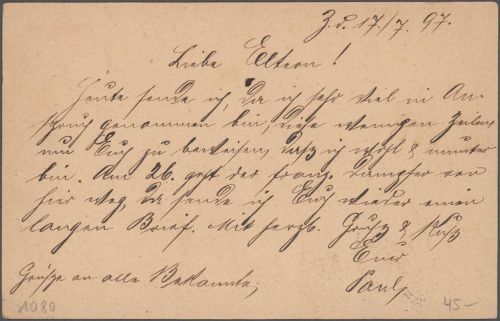 Z. d. 17./7. 97.
Liebe Eltern!
Heute sende ich, da ich sehr viel in An-
spruch genommen bin, diese wenigen Zeilen,
um Euch zu beweisen, daß ich wohl & munter
bin. Am 26. geht der franz. Dampfer von
hier weg, da sende ich Euch wieder einen
langen Brief. Mit herzl. Gruß & Kuß
Euer
Grüße an alle Bekannte,
Paul
A080
45-